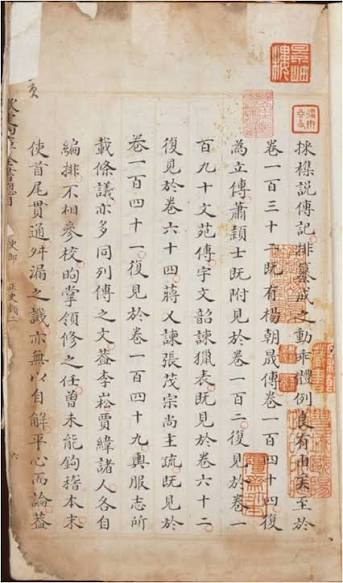 採襍說傳記排纂成之動乖體例良有由矣至於
卷一百三十一既有楊朝晟傳卷一百四十四復
為立傳蕭穎士既附見於卷一百二復見於卷一
百九十文苑傳宇文韶諫獵表既見於卷六十二
復見於卷六十四蔣乂諫張茂宗尚主疏既見於
卷一百四十一復見於卷一百四十九輿服志所
載條議亦多同列傳之文蓋李崧賈緯諸人各自
編排不相參校昫掌領修之任曾未能鉤稽本末
使首尾貫通舛漏之譏亦無以自解平心而論蓋
全書總目 史部 正史類二 六